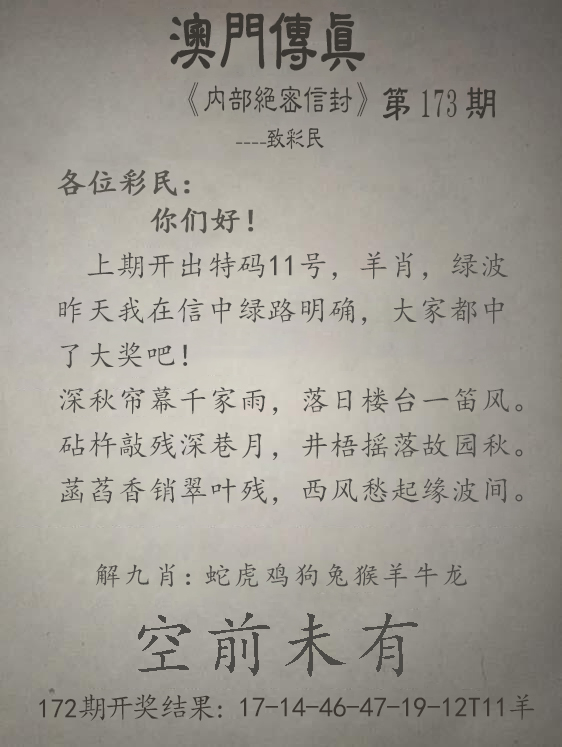 澳門傳眞
《内部絕密信封》第173期
----致彩民
各位彩民：
你们好！
上期开出特码11号，羊肖，绿波
昨天我在信中绿路明确，大家都中
了大奖吧！
深秋帘幕千家雨，落日楼台一笛风。
砧杵敲残深巷月，井梧摇落故园秋。
菡萏香销翠叶残，西风愁起缘波间。
解九肖：蛇虎鸡狗兔猴羊牛龙
空前未有
172期开奖结果：17-14-46-47-19-12T11羊